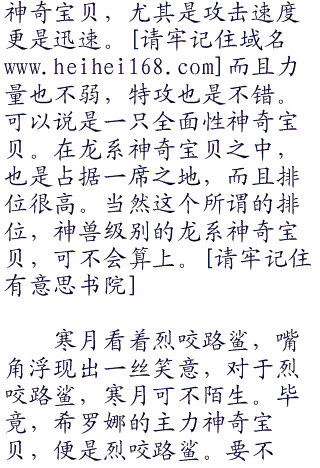 神奇宝贝，尤其是攻击速度
更是迅速。[请牢记住域名
www.heihei168.com]而且力
量也不弱，特攻也是不错。
可以说是一只全面性神奇宝
贝。在龙系神奇宝贝之中，
也是占据一席之地，而且排
位很高。当然这个所谓的排
位，神兽级别的龙系神奇宝
贝，可不会算上。[请牢记住
有意思书院]
寒月看着烈咬路鲨，嘴
角浮现出一丝笑意，对于烈
咬路鲨，寒月可不陌生。毕
竟，希罗娜的主力神奇宝
贝，便是烈咬路鲨。要不